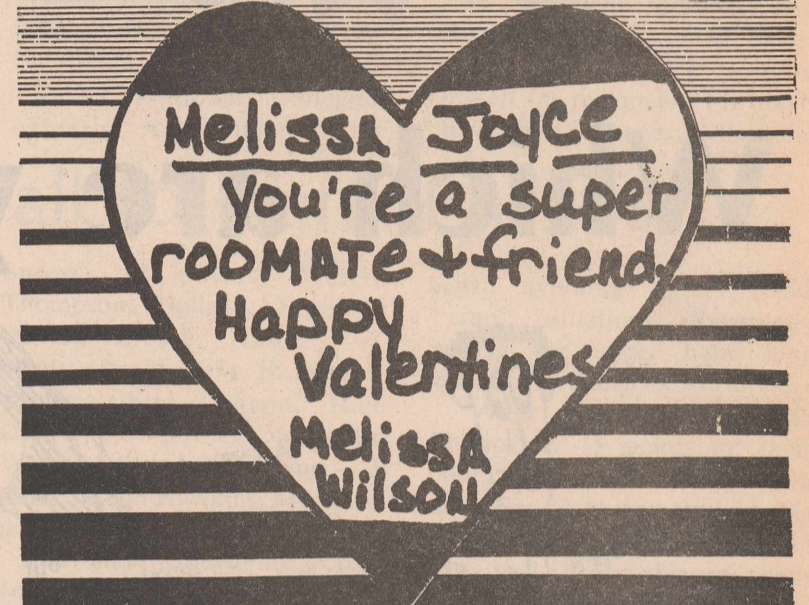 Melissa Joyce
You're a super
rooMATe + friend.
Happy
Valentines
Melissa
Wilson